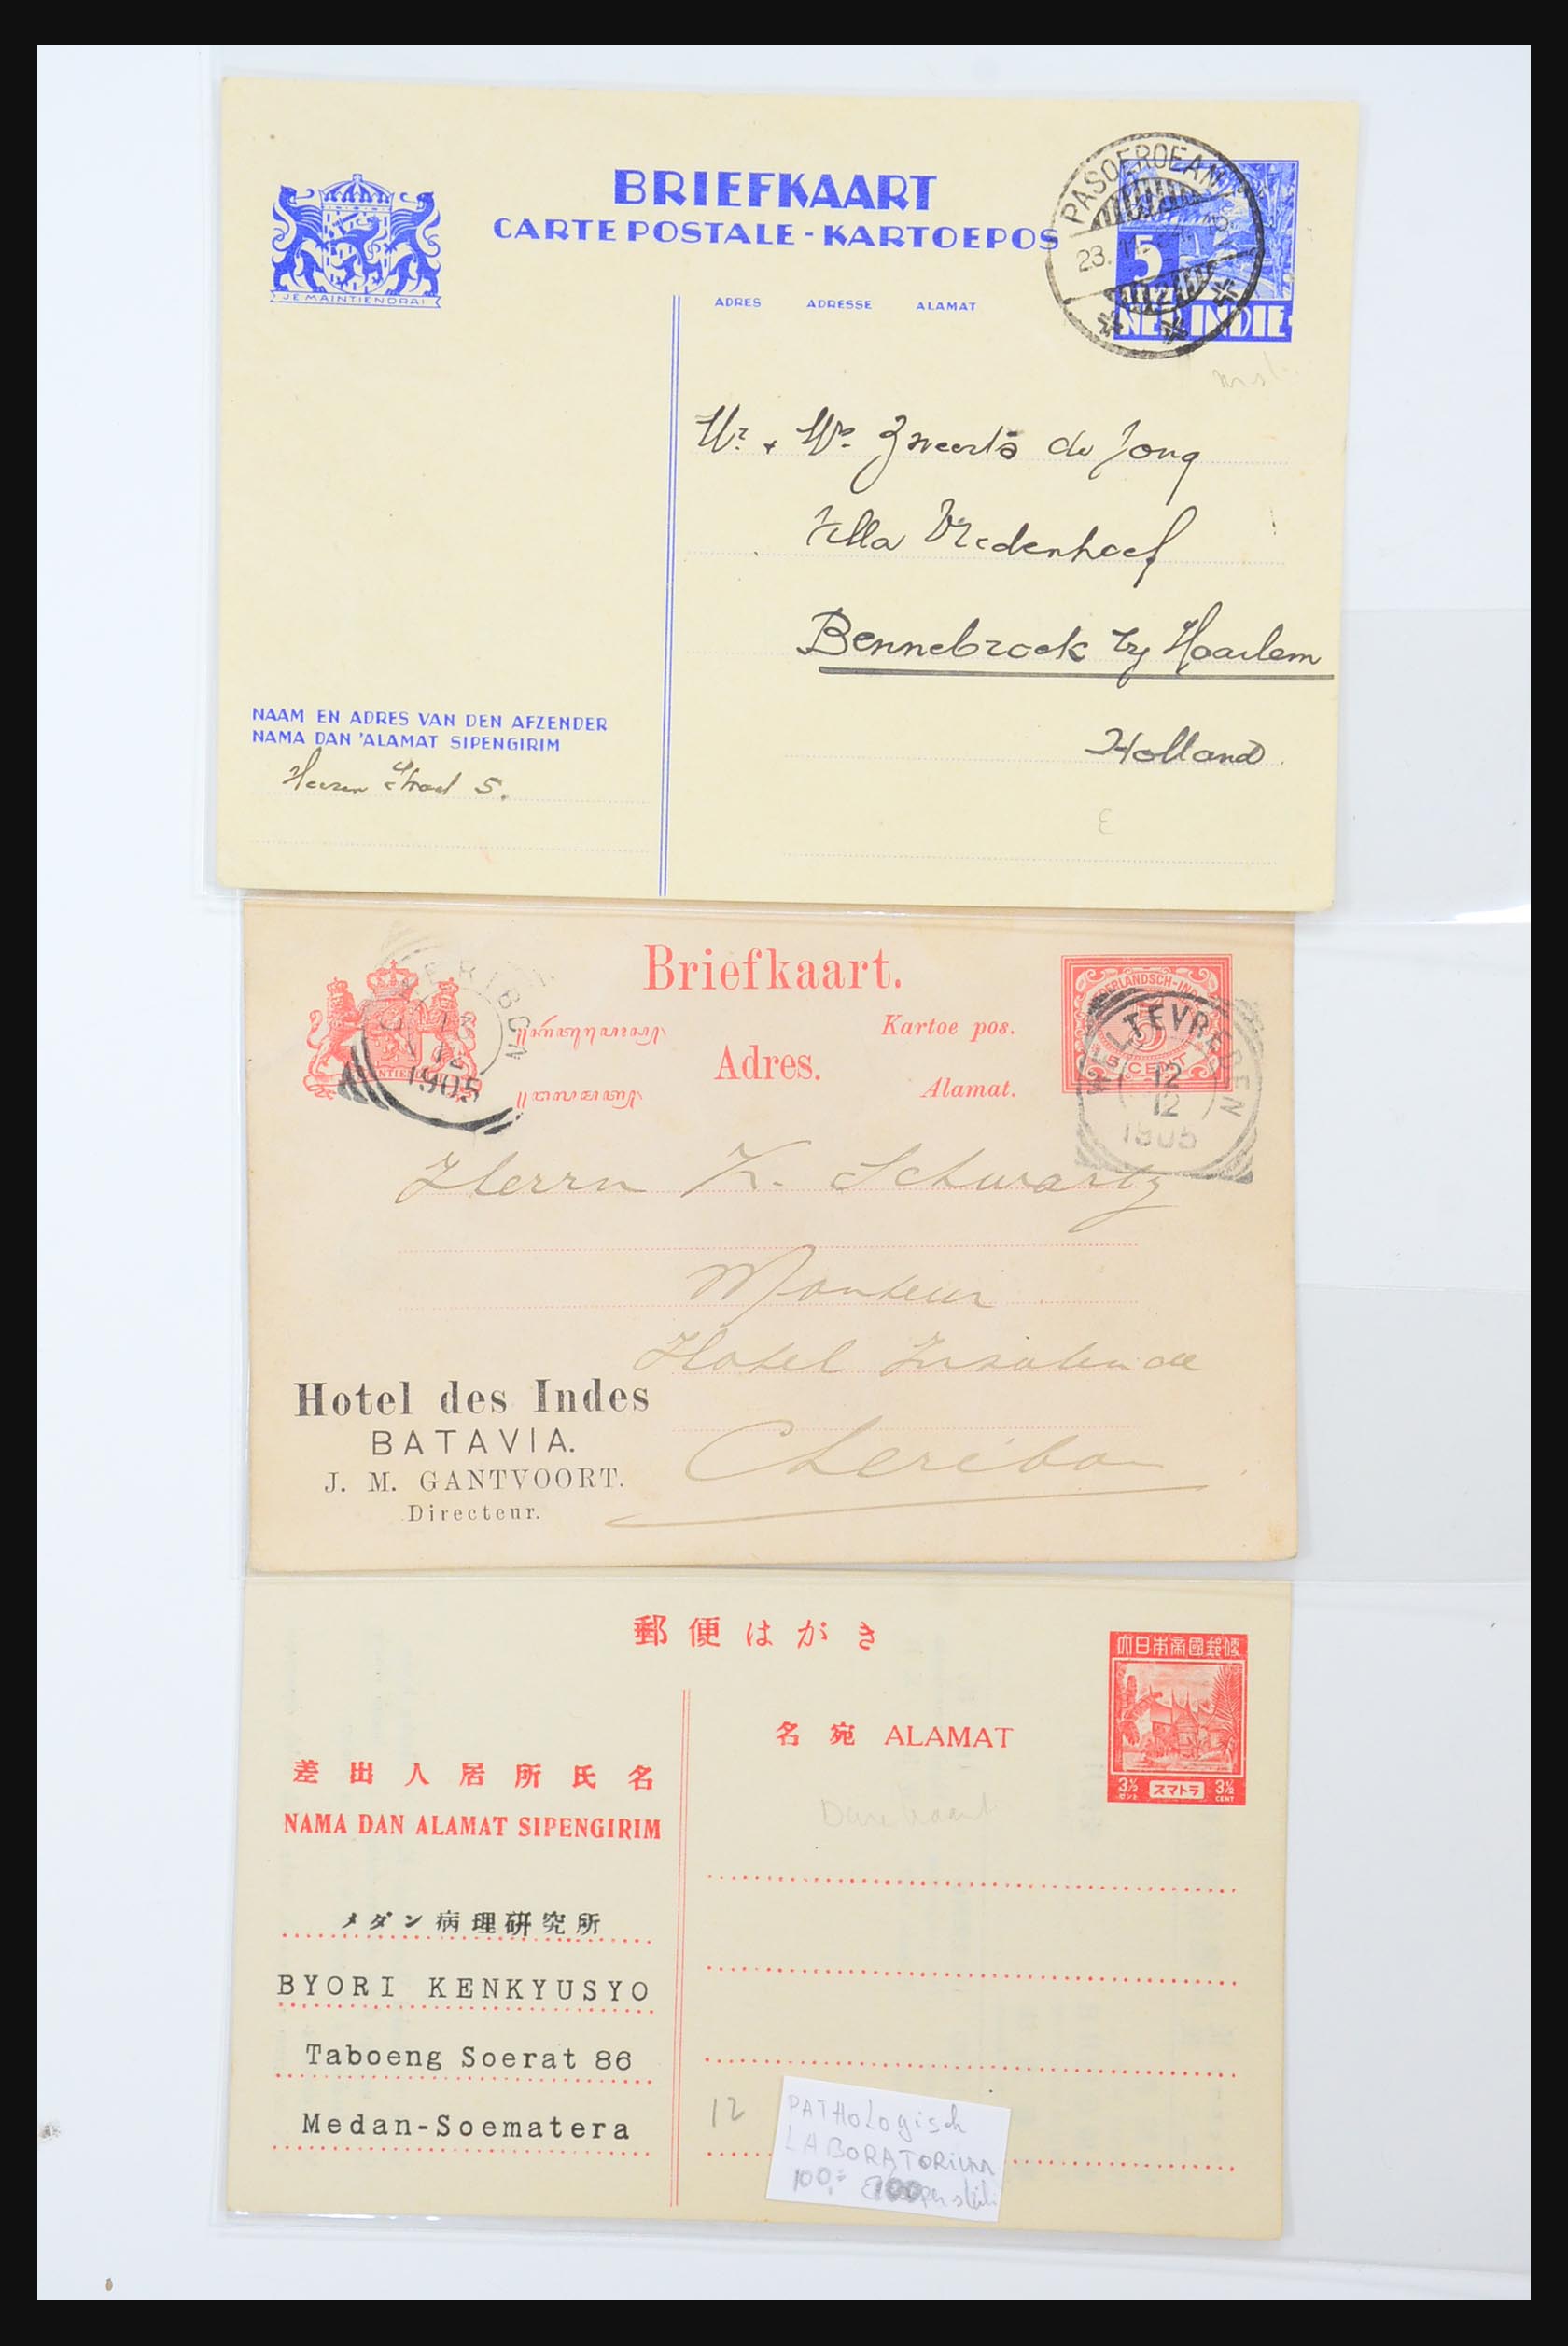 BRIEFKAART
CARTE POSTALE - KARTOEPOS
JE MAINTIENDRAI
PASOEROEAN
23.
5
NED. INDIE
ADRES ADRESSE ALAMAT
Mr. + Mrs. Zweerts de Jong
Villa Vredenhoef
Bennebroek by Haarlem
Holland
NAAM EN ADRES VAN DEN AFZENDER
NAMA DAN 'ALAMAT SIPENGIRIM
Heeren Straat 5.
Briefkaart.
Kartoe pos.
Adres.
Alamat.
CHERIBON
12
1905
NEDERLANDSCH-INDIË
5
CENT
WELTEVREDEN
12
12
1905
Herrn K. Schwartz
Monteur
Hotel Insulinde
Cheribon
Hotel des Indes
BATAVIA.
J. M. GANTVOORT.
Directeur.
郵便はがき
大日本帝國郵便
3½ セント スマトラ 3½ CENT
名宛 ALAMAT
差出人居所氏名
NAMA DAN ALAMAT SIPENGIRIM
メダン病理研究所
BYORI KENKYUSYO
Taboeng Soerat 86
Medan-Soematera
12
PATHologisch
LABORATORium
100,-